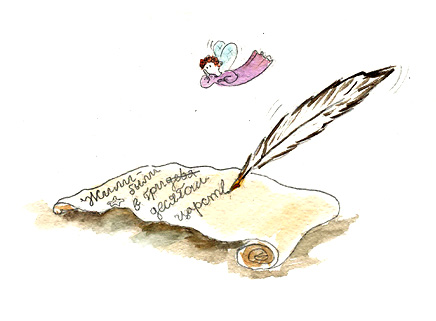 жили-
были
в тридева
десятом
царстве